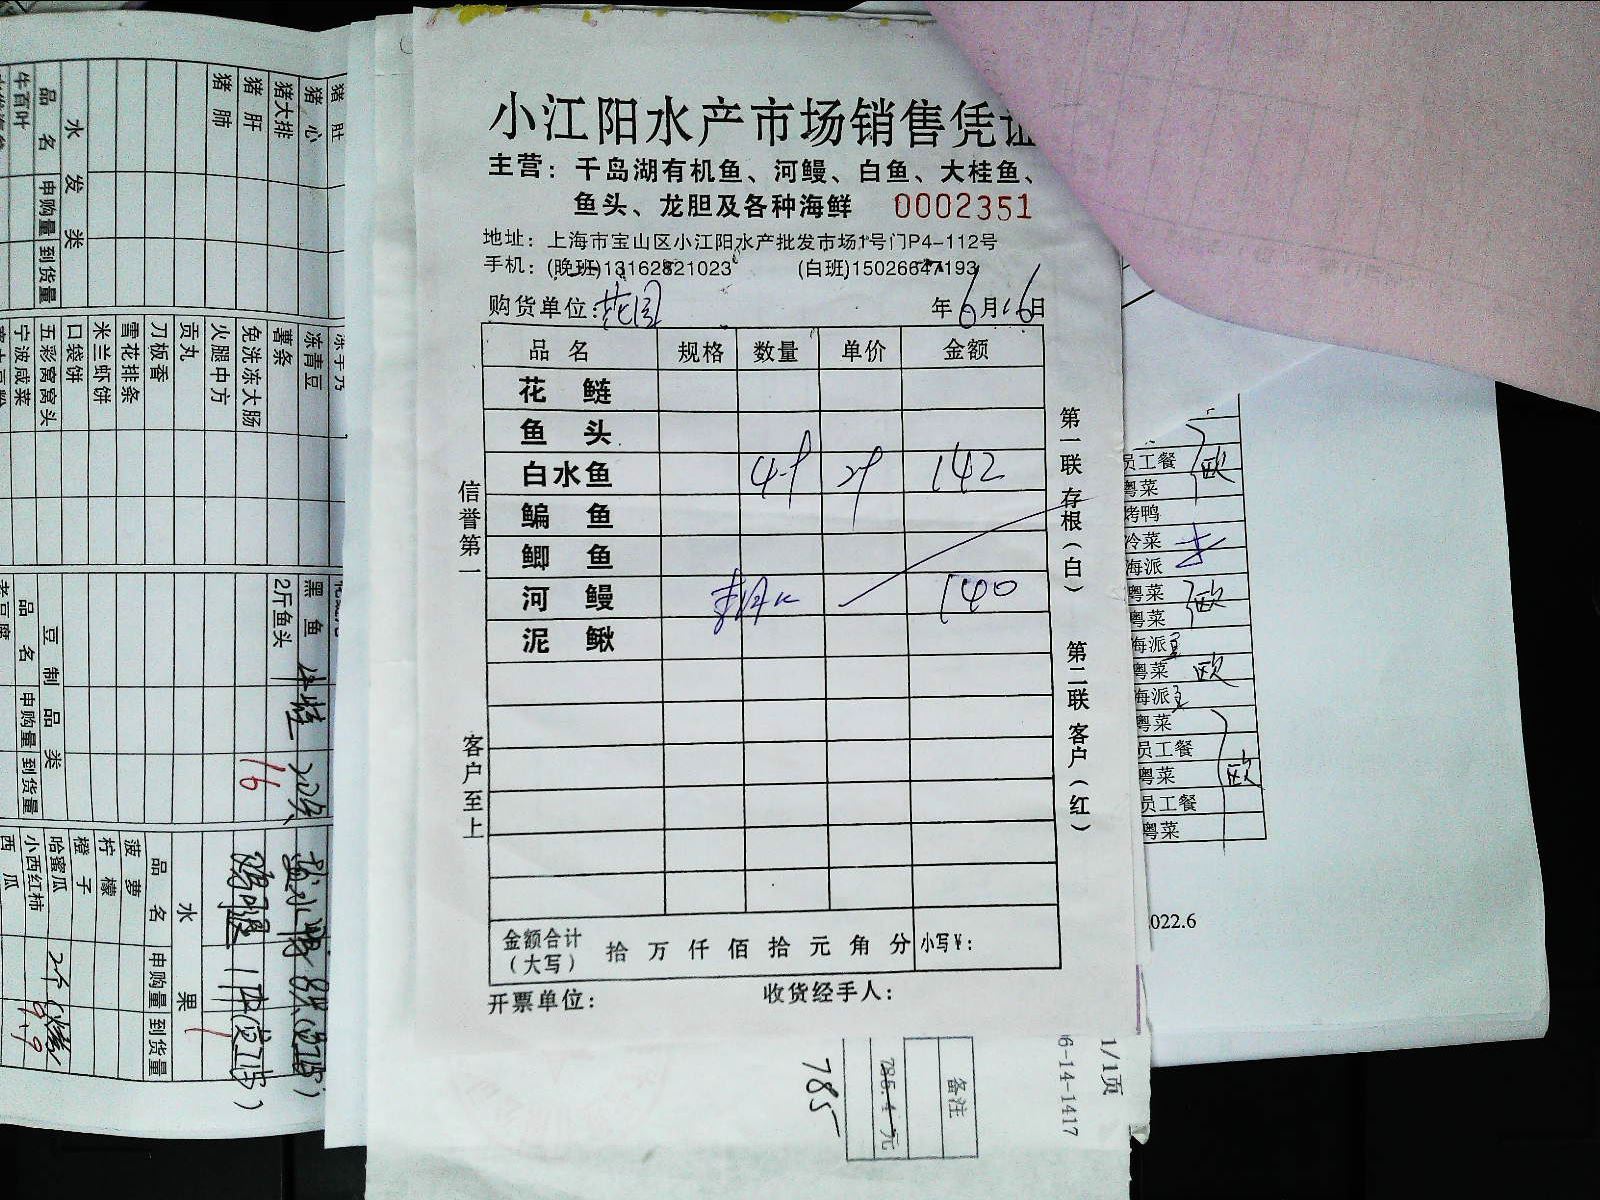 小江阳水产市场销售凭证
主营：千岛湖有机鱼、河鳗、白鱼、大桂鱼、
鱼头、龙胆及各种海鲜 0002351
地址：上海市宝山区小江阳水产批发市场1号门P4-112号
手机：(晚班)13162821023 (白班)15026647193
购货单位：花园 年6月16日
品名 规格 数量 单价 金额
花鲢
鱼头
白水鱼 142
鳊鱼
鲫鱼
河鳗 140
泥鳅
金额合计（大写） 拾万仟佰拾元角分 小写¥：
开票单位： 收货经手人：
信誉第一 客户至上
第一联 存根（白） 第二联 客户（红）
猪肚
猪心
猪大排
猪肝
猪肺
水发类
品名 申购量 到货量
牛百叶
冻青豆
薯条
免洗冻大肠
火腿中方
贡丸
刀板香
雪花排条
米兰虾饼
口袋饼
五彩窝窝头
宁波咸菜
黑鱼
2斤鱼头
16
豆制品类
品名 申购量 到货量
老豆腐
水果
品名 申购量 到货量
菠萝
柠檬
橙子
哈蜜瓜
小西红柿
西瓜
员工餐 欧
粤菜
烤鸭
冷菜
海派
粤菜 欧
粤菜
海派
粤菜 欧
海派
粤菜
员工餐
粤菜 欧
员工餐
粤菜
022.6
1/1页
6-14-1417
备注
785.4元
785